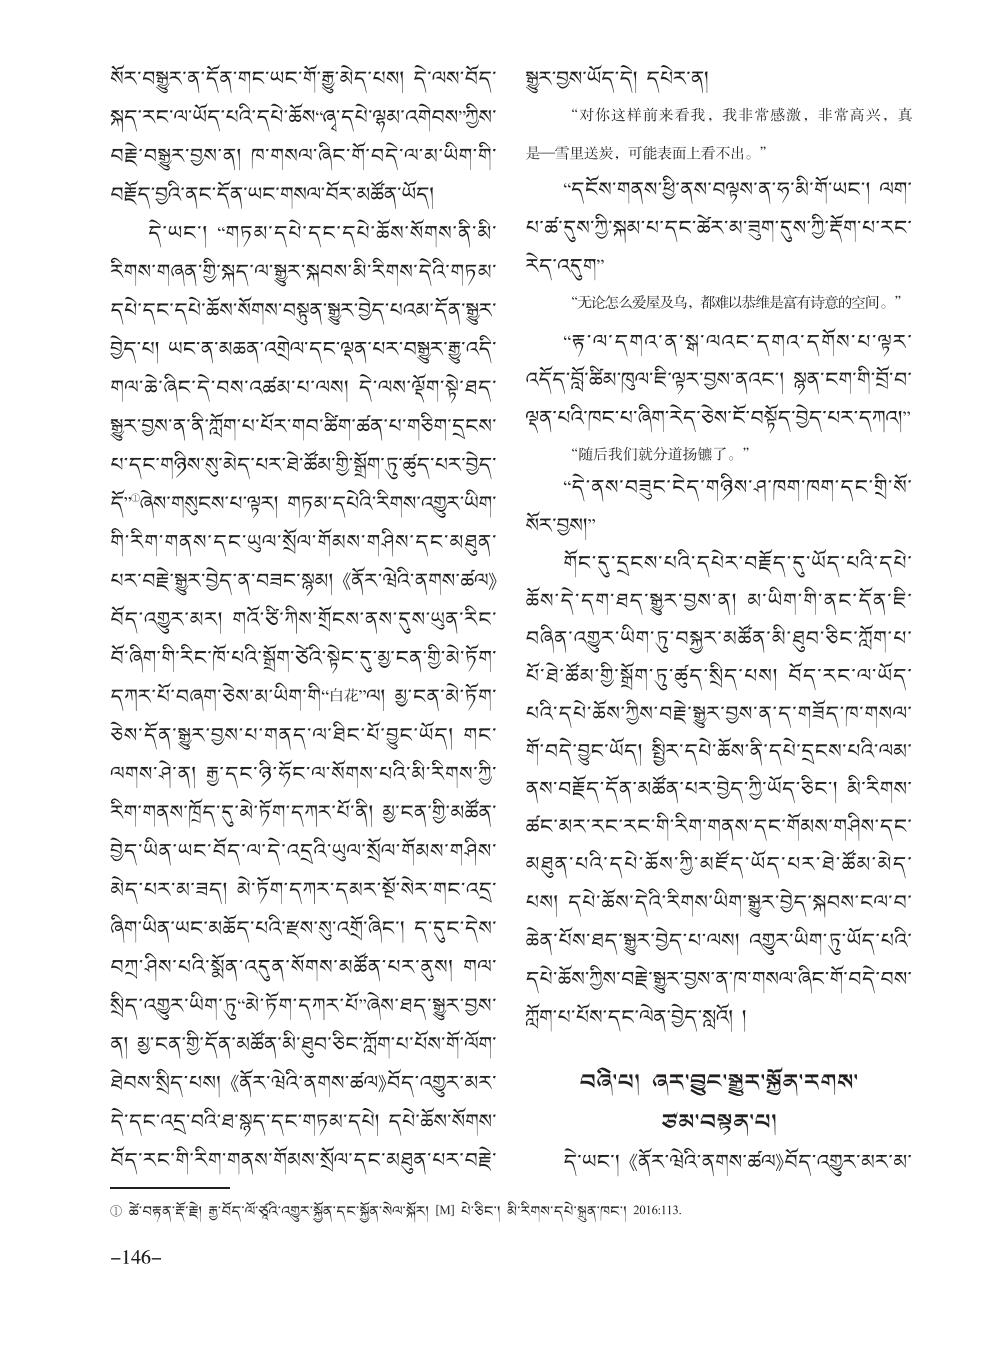 སོར་བསྒྱུར་ན་དོན་གང་ཡང་གོ་རྒྱུ་མེད་པས། དེ་ལས་བོད་
སྐད་རང་ལ་ཡོད་པའི་དཔེ་ཆོས“ཞྭ་དཔེ་ལྷམ་འགེབས”ཀྱིས་
བརྗེ་བསྒྱུར་བྱས་ན། ཁ་གསལ་ཞིང་གོ་བདེ་ལ་མ་ཡིག་གི་
བརྗོད་བྱའི་ནང་དོན་ཡང་གསལ་བོར་མཚོན་ཡོད།
དེ་ཡང་། “གཏམ་དཔེ་དང་དཔེ་ཆོས་སོགས་ནི་མི་
རིགས་གཞན་གྱི་སྐད་ལ་སྒྱུར་སྐབས་མི་རིགས་དེའི་གཏམ་
དཔེ་དང་དཔེ་ཆོས་སོགས་བསྟུན་སྒྱུར་བྱེད་པའམ་དོན་སྒྱུར་
བྱེད་པ། ཡང་ན་མཆན་འགྲེལ་དང་ལྡན་པར་བསྒྱུར་རྒྱུ་འདི་
གལ་ཆེ་ཞིང་དེ་བས་འཚམ་པ་ལས། དེ་ལས་ལྡོག་སྟེ་ཐད་
སྒྱུར་བྱས་ན་ནི་ཀློག་པ་པོར་གབ་ཚིག་ཚན་པ་གཅིག་དྲངས་
པ་དང་གཉིས་སུ་མེད་པར་ཐེ་ཚོམ་གྱི་སྒྲོག་ཏུ་ཚུད་པར་བྱེད་
དོ”①ཞེས་གསུངས་པ་ལྟར། གཏམ་དཔེའི་རིགས་འགྱུར་ཡིག་
གི་རིག་གནས་དང་ཡུལ་སྲོལ་གོམས་གཤིས་དང་མཐུན་
པར་བརྗེ་སྒྱུར་བྱེད་ན་བཟང་སྙམ། 《ནོར་ཝེའི་ནགས་ཚལ》
བོད་འགྱུར་མར། གའོ་ཙི་ཀིས་གྲོངས་ནས་དུས་ཡུན་རིང་
བོ་ཞིག་གི་རིང་ཁོ་པའི་སྒྲོག་ཙེའི་སྟེང་དུ་མྱ་ངན་གྱི་མེ་ཏོག་
དཀར་པོ་བཞག་ཅེས་མ་ཡིག་གི“白花”ལ། མྱ་ངན་མེ་ཏོག་
ཅེས་དོན་སྒྱུར་བྱས་པ་གནད་ལ་ཐིང་པོ་བྱུང་ཡོད། གང་
ལགས་ཤེ་ན། རྒྱ་དང་ཉི་ཧོང་ལ་སོགས་པའི་མི་རིགས་ཀྱི་
རིག་གནས་ཁྲོད་དུ་མེ་ཏོག་དཀར་པོ་ནི། མྱ་ངན་གྱི་མཚོན་
བྱེད་ཡིན་ཡང་བོད་ལ་དེ་འདྲའི་ཡུལ་སྲོལ་གོམས་གཤིས་
མེད་པར་མ་ཟད། མེ་ཏོག་དཀར་དམར་སྔོ་སེར་གང་འདྲ་
ཞིག་ཡིན་ཡང་མཆོད་པའི་རྫས་སུ་འགྲོ་ཞིང་། ད་དུང་དེས་
བཀྲ་ཤིས་པའི་སྨོན་འདུན་སོགས་མཚོན་པར་ནུས། གལ་
སྲིད་འགྱུར་ཡིག་ཏུ“མེ་ཏོག་དཀར་པོ”ཞེས་ཐད་སྒྱུར་བྱས་
ན། མྱ་ངན་གྱི་དོན་མཚོན་མི་ཐུབ་ཅིང་ཀློག་པ་པོས་གོ་ལོག་
ཐེབས་སྲིད་པས། 《ནོར་ཝེའི་ནགས་ཚལ》བོད་འགྱུར་མར་
དེ་དང་འདྲ་བའི་ཐ་སྙད་དང་གཏམ་དཔེ། དཔེ་ཆོས་སོགས་
བོད་རང་གི་རིག་གནས་གོམས་སྲོལ་དང་མཐུན་པར་བརྗེ་
སྒྱུར་བྱས་ཡོད་དེ། དཔེར་ན།
“对你这样前来看我，我非常感激，非常高兴，真
是—雪里送炭，可能表面上看不出。”
“དངོས་གནས་ཕྱི་ནས་བལྟས་ན་ཧ་མི་གོ་ཡང་། ལག་
པ་ཚ་དུས་ཀྱི་སྐམ་པ་དང་ཚེར་མ་ཟུག་དུས་ཀྱི་རྡོག་པ་རང་
རེད་འདུག”
“无论怎么爱屋及乌，都难以恭维是富有诗意的空间。”
“རྟ་ལ་དགའ་ན་སྒ་ལའང་དགའ་དགོས་པ་ལྟར་
འདོད་བློ་ཚིམ་ཁུལ་ཇི་ལྟར་བྱས་ནའང་། སྙན་ངག་གི་བྲོ་བ་
ལྡན་པའི་ཁང་པ་ཞིག་རེད་ཅེས་ངོ་བསྟོད་བྱེད་པར་དཀའ།”
“随后我们就分道扬镳了。”
“དེ་ནས་བཟུང་ངེད་གཉིས་ཤ་ཁག་ཁག་དང་གྲི་སོ་
སོར་བྱས།”
གོང་དུ་དྲངས་པའི་དཔེར་བརྗོད་དུ་ཡོད་པའི་དཔེ་
ཆོས་དེ་དག་ཐད་སྒྱུར་བྱས་ན། མ་ཡིག་གི་ནང་དོན་ཇི་
བཞིན་འགྱུར་ཡིག་ཏུ་བསྐྱར་མཚོན་མི་ཐུབ་ཅིང་ཀློག་པ་
པོ་ཐེ་ཚོམ་གྱི་སྒྲོག་ཏུ་ཚུད་སྲིད་པས། བོད་རང་ལ་ཡོད་
པའི་དཔེ་ཆོས་ཀྱིས་བརྗེ་སྒྱུར་བྱས་ན་ད་གཟོད་ཁ་གསལ་
གོ་བདེ་བྱུང་ཡོད། སྤྱིར་དཔེ་ཆོས་ནི་དཔེ་དྲངས་པའི་ལམ་
ནས་བརྗོད་དོན་མཚོན་པར་བྱེད་ཀྱི་ཡོད་ཅིང་། མི་རིགས་
ཚང་མར་རང་རང་གི་རིག་གནས་དང་གོམས་གཤིས་དང་
མཐུན་པའི་དཔེ་ཆོས་ཀྱི་མཛོད་ཡོད་པར་ཐེ་ཚོམ་མེད་
པས། དཔེ་ཆོས་དེའི་རིགས་ཡིག་སྒྱུར་བྱེད་སྐབས་ངལ་བ་
ཆེན་པོས་ཐད་སྒྱུར་བྱེད་པ་ལས། འགྱུར་ཡིག་ཏུ་ཡོད་པའི་
དཔེ་ཆོས་ཀྱིས་བརྗེ་སྒྱུར་བྱས་ན་ཁ་གསལ་ཞིང་གོ་བདེ་བས་
ཀློག་པ་པོས་དང་ལེན་བྱེད་སླའོ། །
བཞི་པ། ཞར་བྱུང་སྒྱུར་སྐྱོན་རགས་
ཙམ་བསྟན་པ།
དེ་ཡང་། 《ནོར་ཝེའི་ནགས་ཚལ》བོད་འགྱུར་མར་མ་
① ཚེ་བརྟན་རྡོ་རྗེ། རྒྱ་བོད་ལོ་ཙཱའི་འགྱུར་སྐྱོན་དང་སྐྱོན་སེལ་སྐོར། [M] པེ་ཅིང་། མི་རིགས་དཔེ་སྐྲུན་ཁང་། 2016:113.
–146–